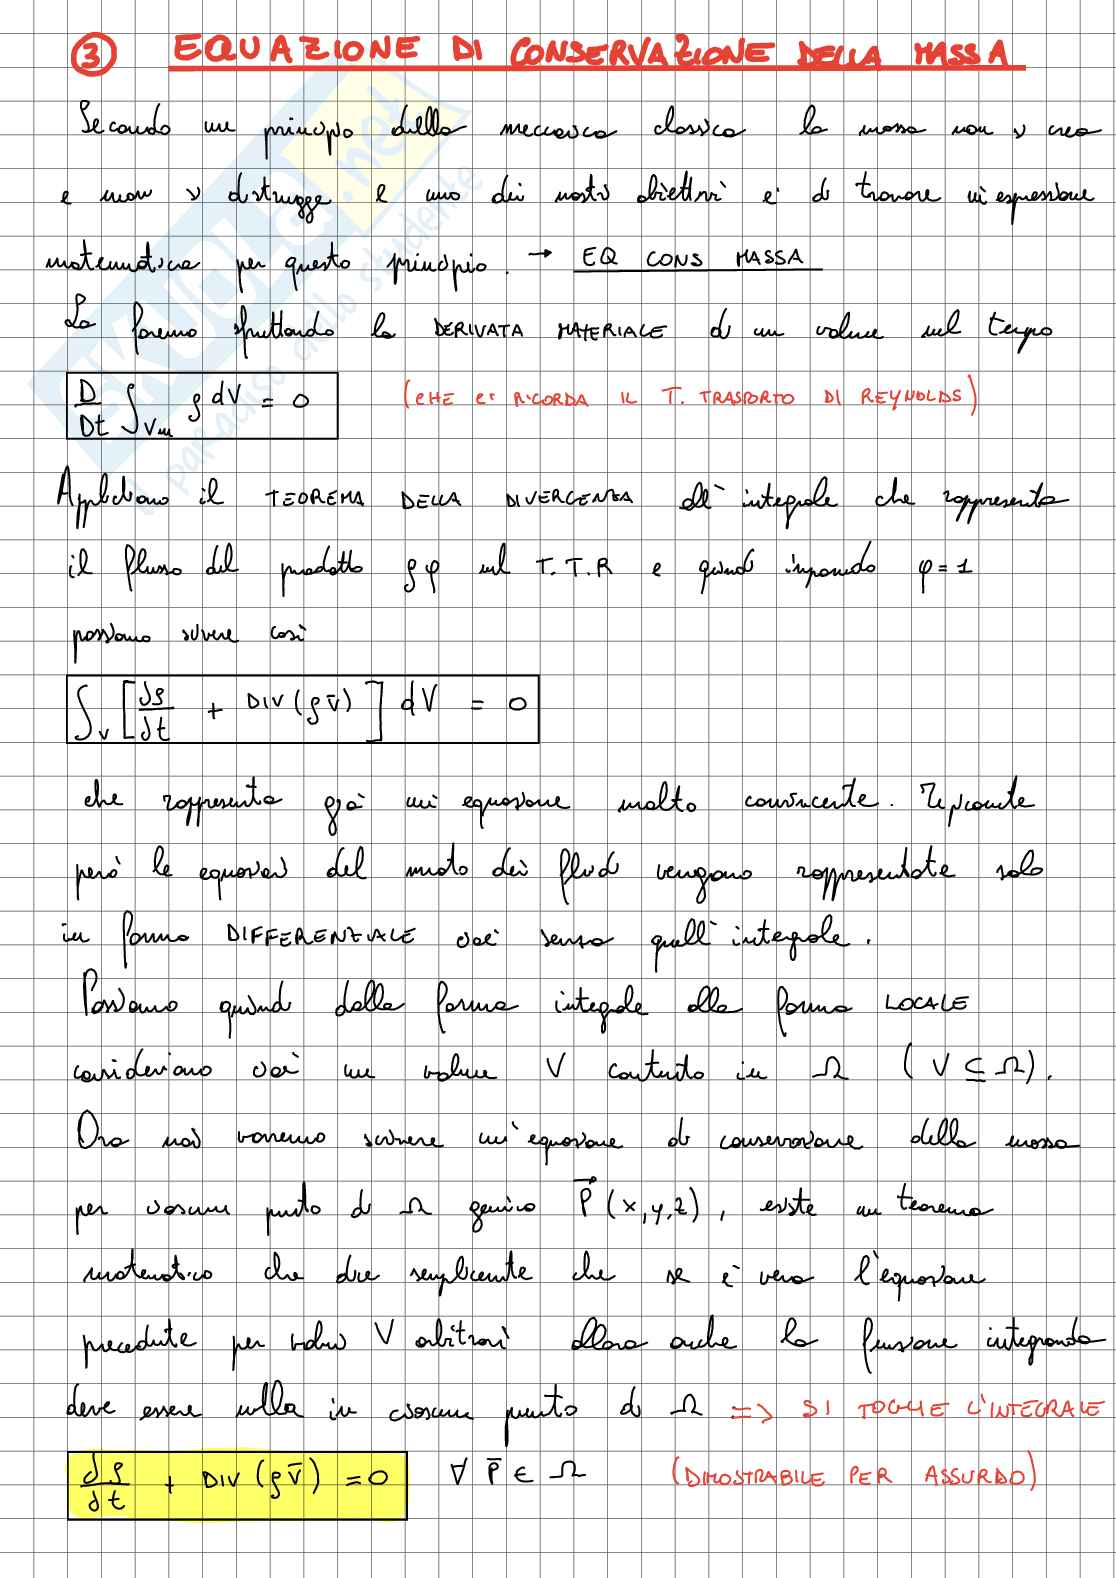 3 EQUAZIONE DI CONSERVAZIONE DELLA MASSA
Secondo un principio della meccanica classica la massa non si crea
e non si distrugge e uno dei nostri obiettivi è di trovare un'espressione
matematica per questo principio. → EQ CONS MASSA
Lo faremo sfruttando la DERIVATA MATERIALE di un volume nel tempo
D/Dt ∫Vm ρ dV = 0 (CHE CI RICORDA IL T. TRASPORTO DI REYNOLDS)
Applichiamo il TEOREMA DELLA DIVERGENZA all'integrale che rappresenta
il flusso del prodotto ρφ nel T.T.R e quindi imponendo φ = 1
possiamo scrivere così
∫V [∂ρ/∂t + DIV (ρv̄)] dV = 0
che rappresenta già un'equazione molto convincente. Tipicamente
però le equazioni del moto dei fluidi vengono rappresentate solo
in forma DIFFERENZIALE cioè senza quell'integrale.
Passiamo quindi dalla forma integrale alla forma LOCALE
consideriamo cioè un volume V contenuto in Ω (V ⊆ Ω).
Ora noi vorremo scrivere un'equazione di conservazione della massa
per ciascun punto di Ω generico P⃗ (x,y,z), esiste un teorema
matematico che dice semplicemente che se è vera l'equazione
precedente per volumi V arbitrari allora anche la funzione integranda
deve essere nulla in ciascun punto di Ω => SI TOGLIE L'INTEGRALE
∂ρ/∂t + DIV (ρv̄) = 0 ∀ P̄ ∈ Ω (DIMOSTRABILE PER ASSURDO)
SKUOLA.net
il paradiso dello studente